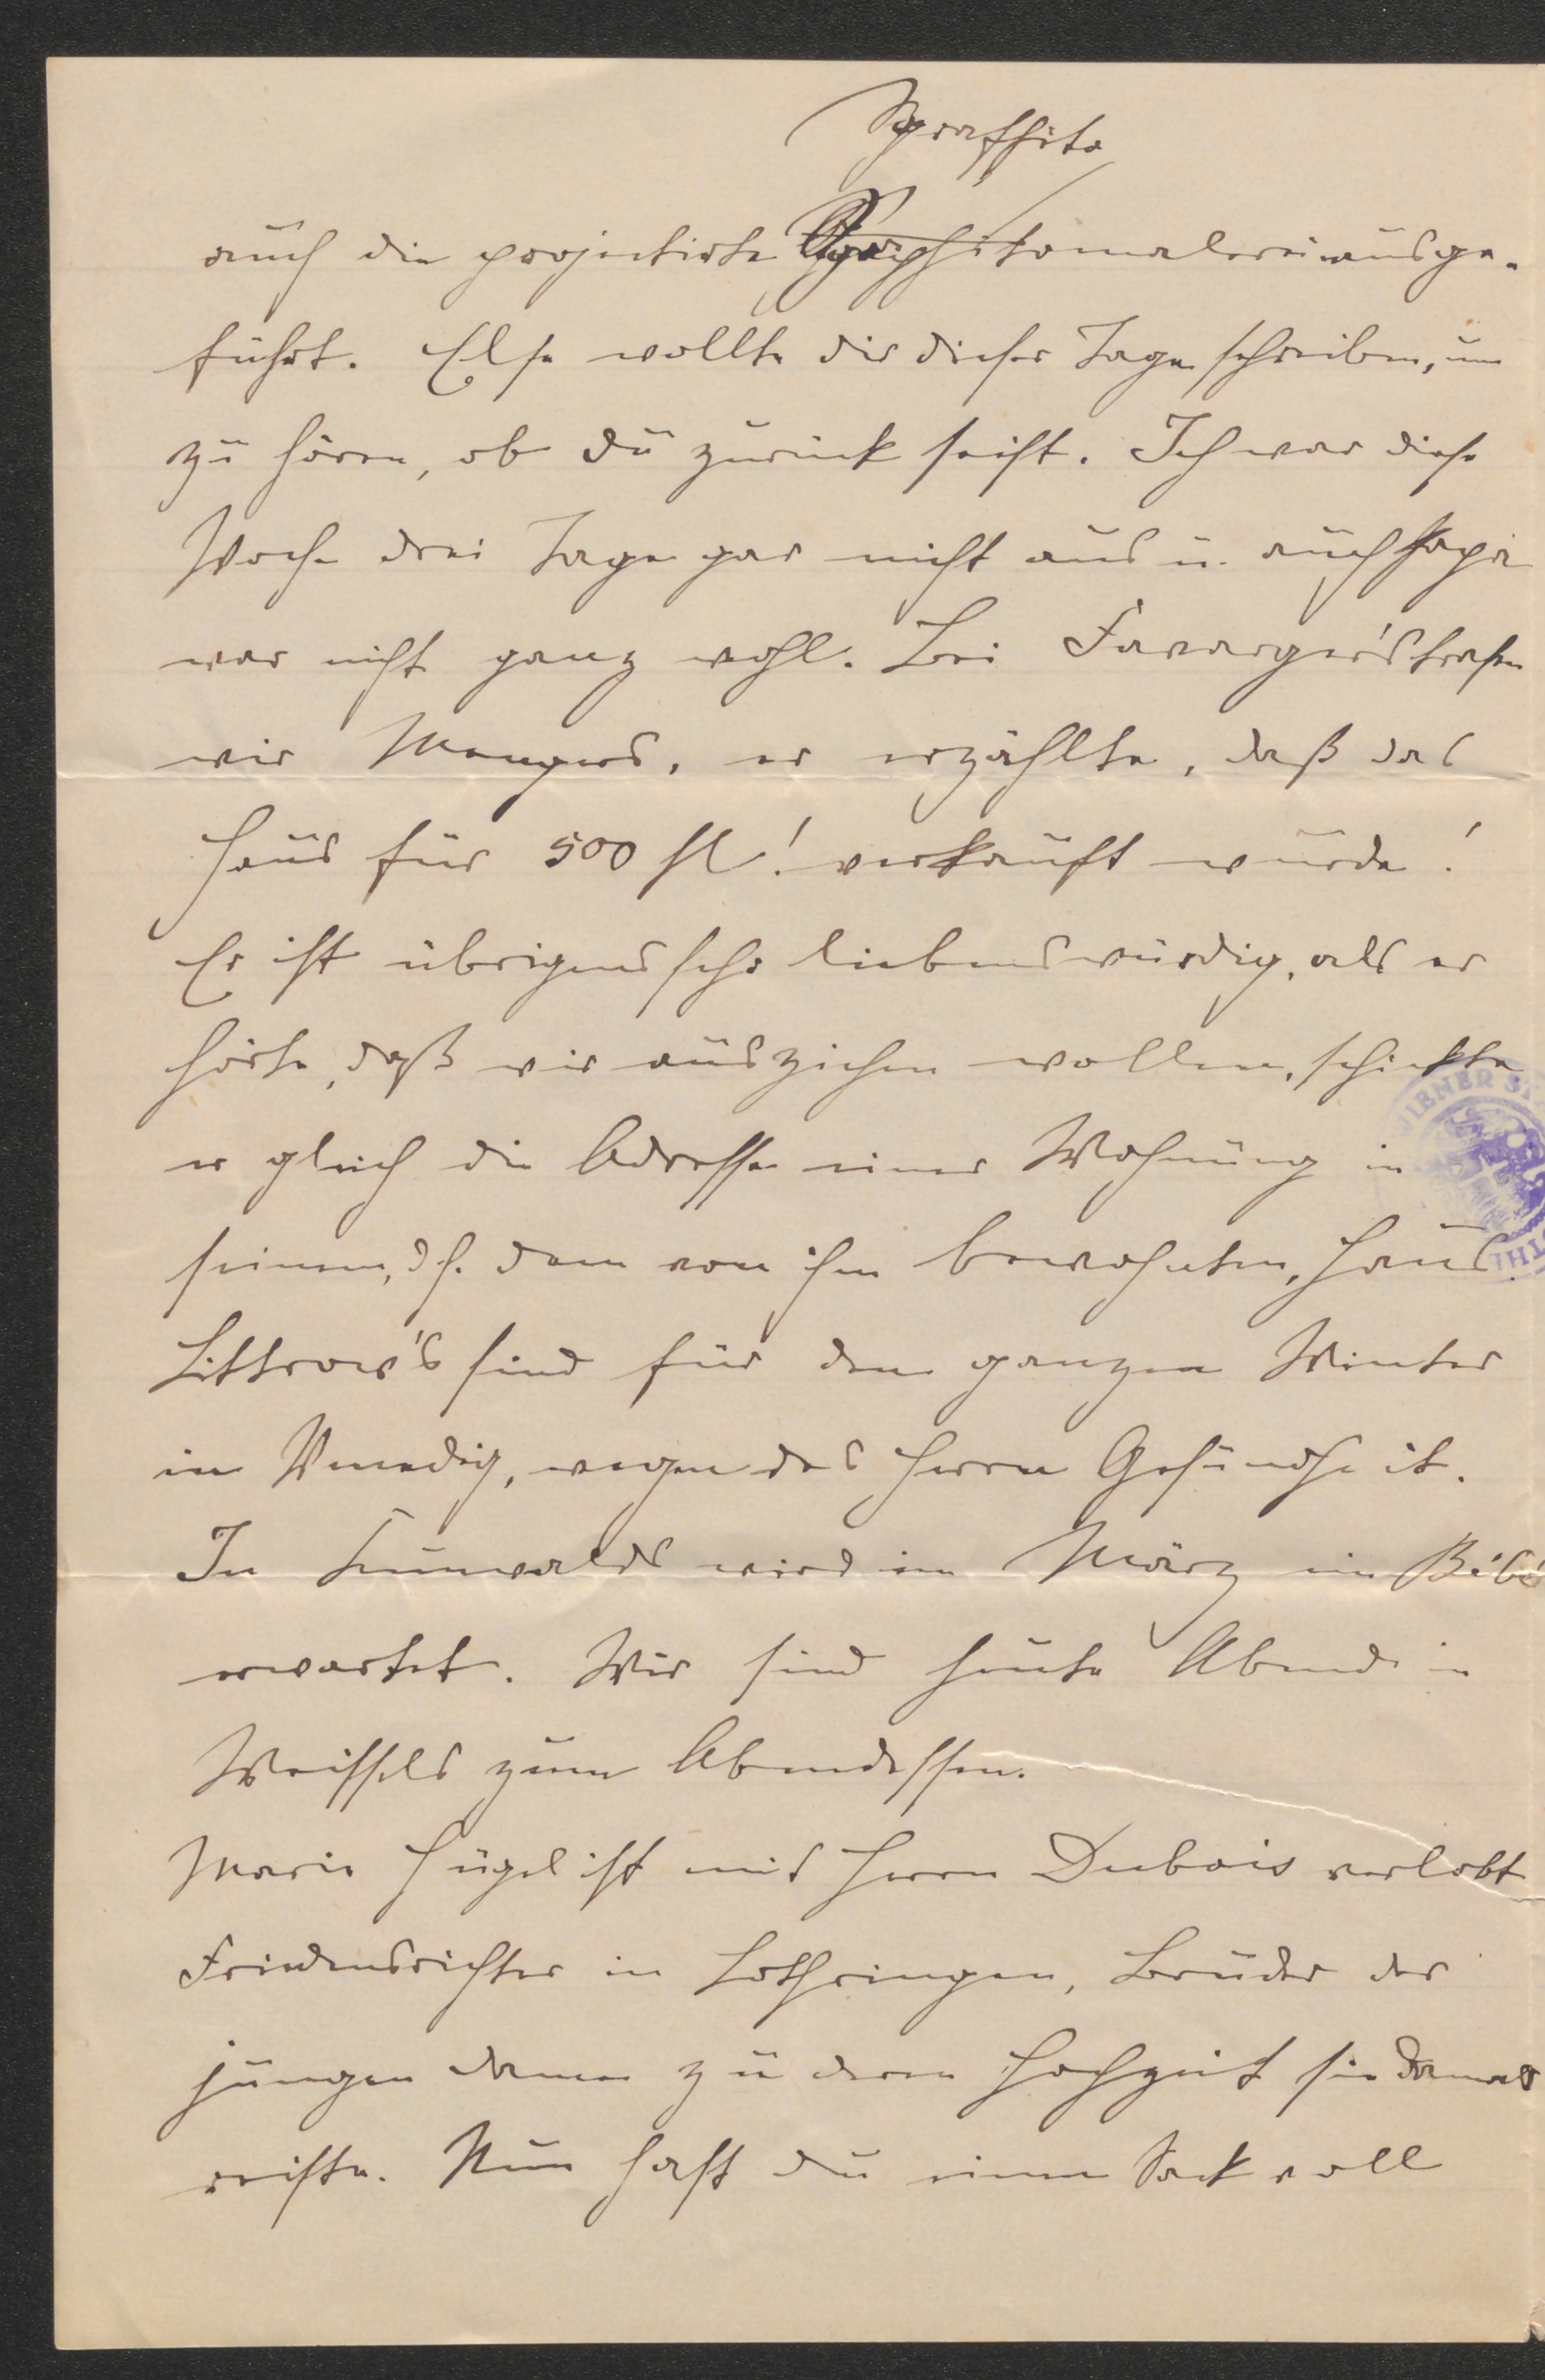 Sgraffito
auch die projectirte Sgraphitomalerei ausge-
führt. Else wollte dir dieser Tage schreiben, um
zu hören, ob du zurück seist. Ich war diese
Woche drei Tage gar nicht aus u. auch Papa
war nicht ganz wohl. Bei Favarger's trafen
wir Mengers, er erzählte, daß das
Haus für 500 fl! verkauft wurde!
Er ist übrigens sehr liebenswürdig, als er
hörte, daß wir ausziehen wollen, schickte
er gleich die Adresse einer Wohnung in
seinem, dh. dem von ihm bewohnten, Haus.
Littrow's sind für den ganzen Winter
in Venedig, wegen des Herrn Gesundheit.
In Lunwalds wird im März ein Bébé
erwartet. Wir sind heute Abend in
Weissels zum Abendessen.
Marie Hügel ist mit Herrn Dubois verlobt
Friedensrichter in Lothringen, Bruder der
jungen Dame zu deren Hochzeit sie damals
reiste. Nun hast du einen Sack voll
WIENER ST